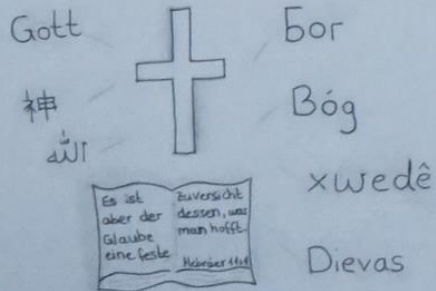 Gott
神
الله
Бог
Bóg
xwedê
Dievas
Es ist
aber der
Glaube
eine feste
Zuversicht
dessen, was
man hofft.
Hebräer 11:1